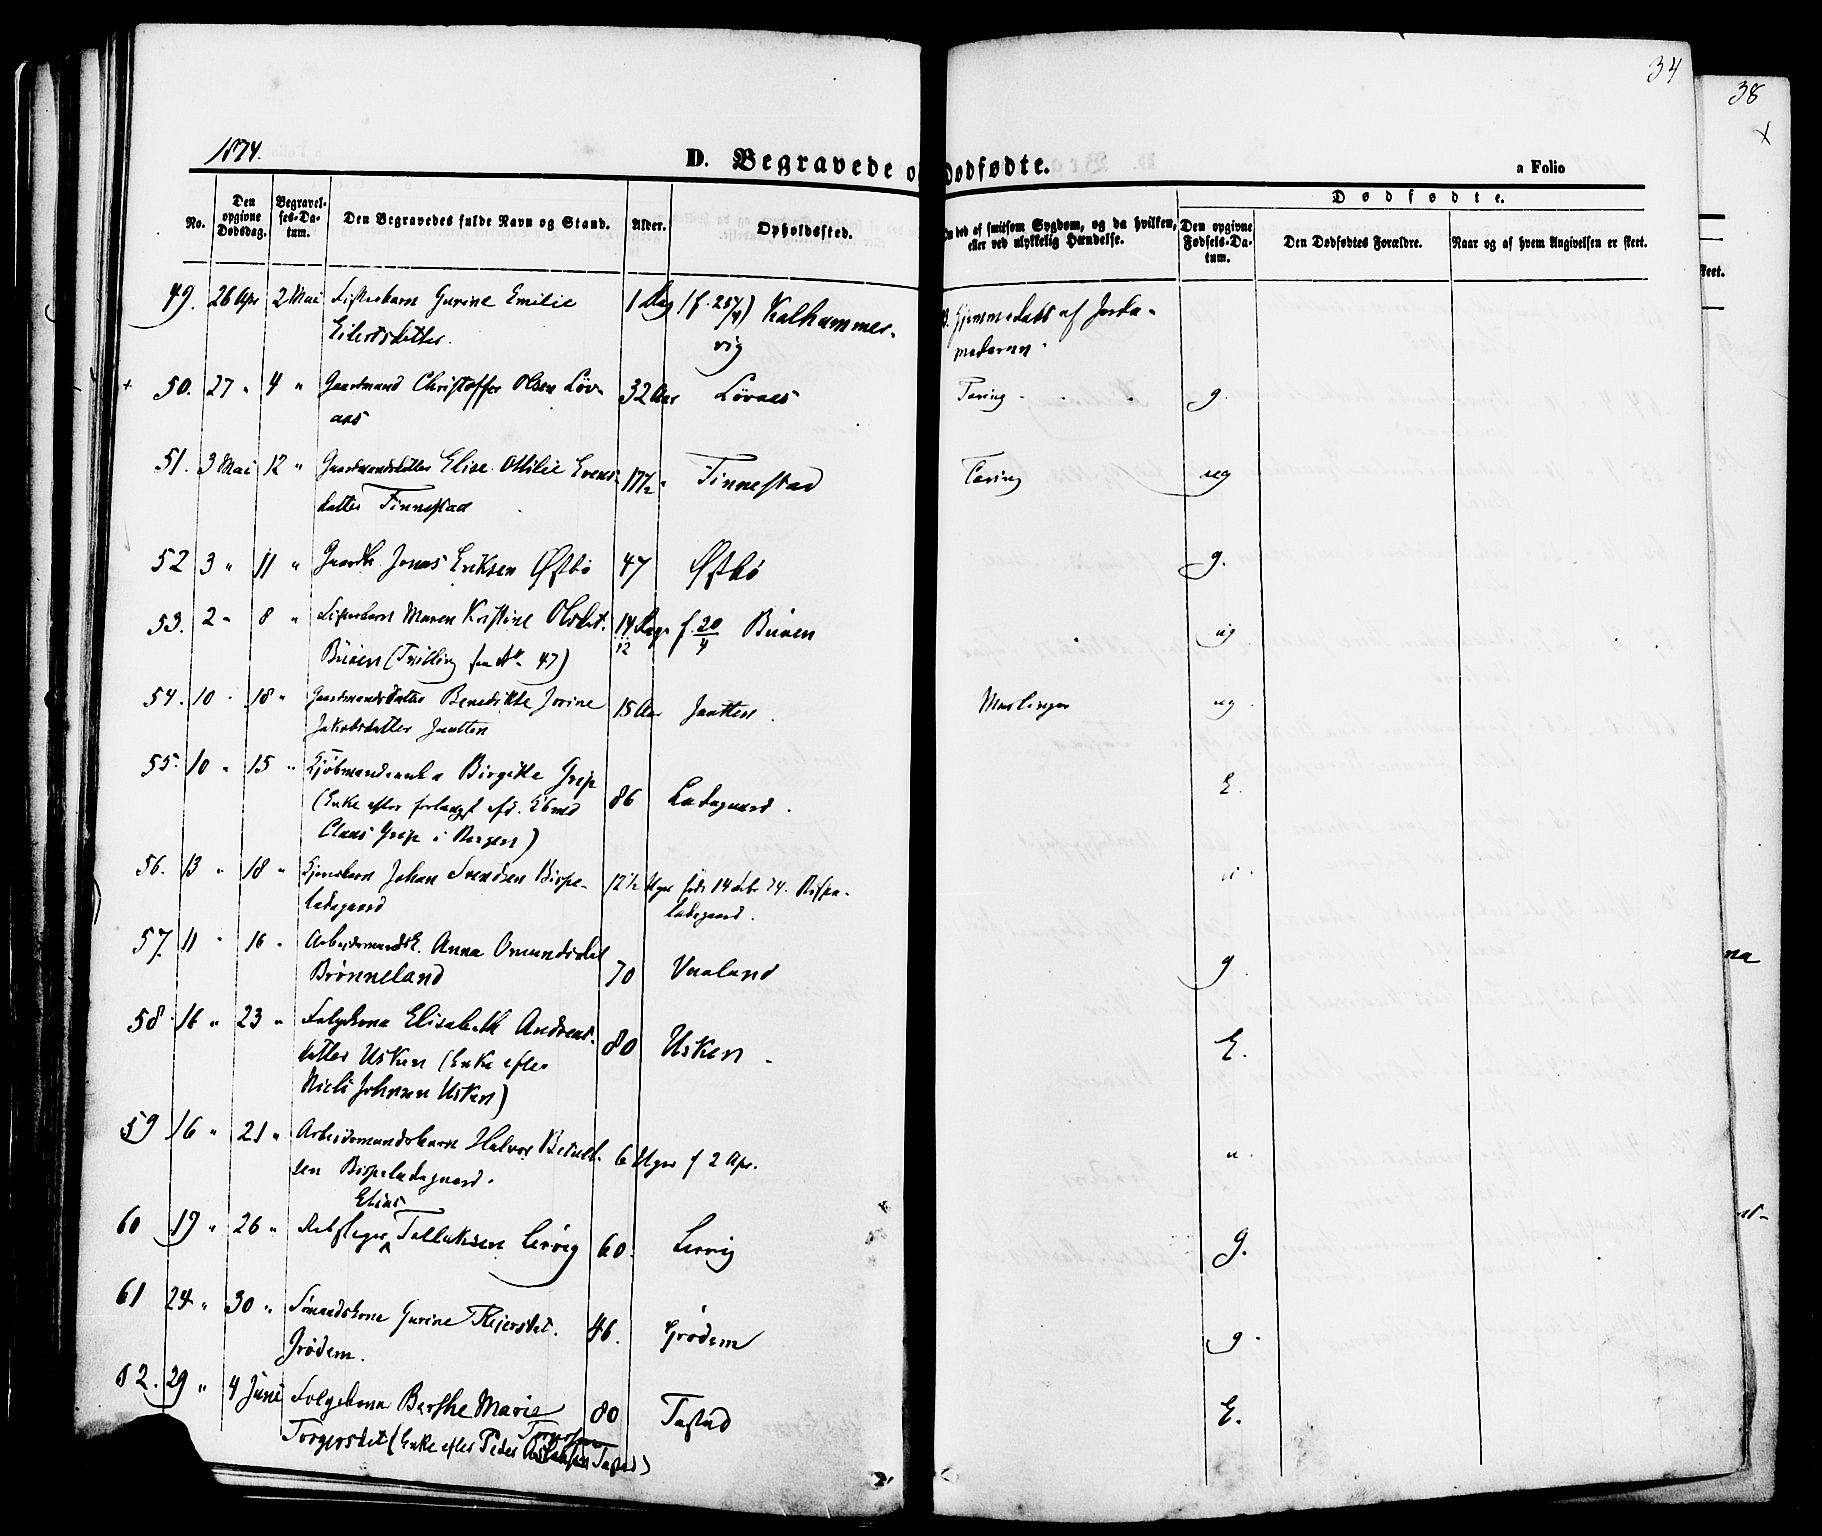 34
38
x
1874.
D. Begravede o
Dødfødte.
a Folio
No.
Den opgivne Dødsdag.
Begravelses-Datum.
Den Begravedes fulde Navn og Stand.
Alder.
Opholdssted.
død af smitsom Sygdom, og da hvilken,
eller ved ulykkelig Hændelse.
Dødfødte.
Den opgivne Fødsels-Datum.
Den Dødfødtes Forældre.
Naar og af hvem Angivelsen er skeet.
skeet.
49. 26 Apr 2 Mai Gurine Emilie 1 Dag (f. 25/4) Kalhammer-
Eilertsdatter. vig
Hjemmedøbt af Jorda-
moderen.
+ 50. 27 " 4 " Gaardmand Christoffer Olsen Løv- 32 Aar Løvaas Tæring g.
aas
51. 3 Mai 12 " Gaardmandsdatter Elise Otilie Evens- 17½ " Finnestad Tæring ug
datter Finnestad
52 3 " 11 " Jonas Eriksen Østbø 47 Østbø g.
53. 2 " 8 " Maren Kristine Olsdt. 14 Dage f. 20/4 Buøen ug
12
Buøen (Tvilling fra No 47)
54. 10 " 18 " Gaardmandsdatter Benedikte Jorine 15 Aar Jaatten. Meslinger ug
Jakobsdatter Jaatten
55. 10 " 15 " Kjøbmandsenke Birgitte Greip
(Enke efter forlængst afd. Kbmd 86 Ladegaard. E.
Claus Greip i Bergen)
56. 13 " 18 " Johan Svendsen Bispe- 12½ Uger født 14 Febr 74. Bispe- u.
ladegaard ladegaard.
57. 11 " 16 " Arbeidsmandsk. Anna Omundsdat
Brønneland 70 Vaaland g.
58. 16 " 23 " Følgekone Elisabeth Andreas-
datter Usken (Enke efter 80 Usken E.
Niels Johnsen Usken)
59 16 " 21 " Arbeidsmandsbarn Halvor Berndt- 6 Uger f 2 Apr. u.
sen Bispeladegaard.
Elias
60 19 " 26 " Rebslager Tollaksen Lervig 60. Lervig g.
61 24 " 30 " Sømandskone Gurine Reiersdat. 46. Grødem g.
Grødem.
62. 29 " 4 Juni Følgekone Berthe Marie 80 Tastad E.
Torgersdat (Enke efter Peder Tastad)
na